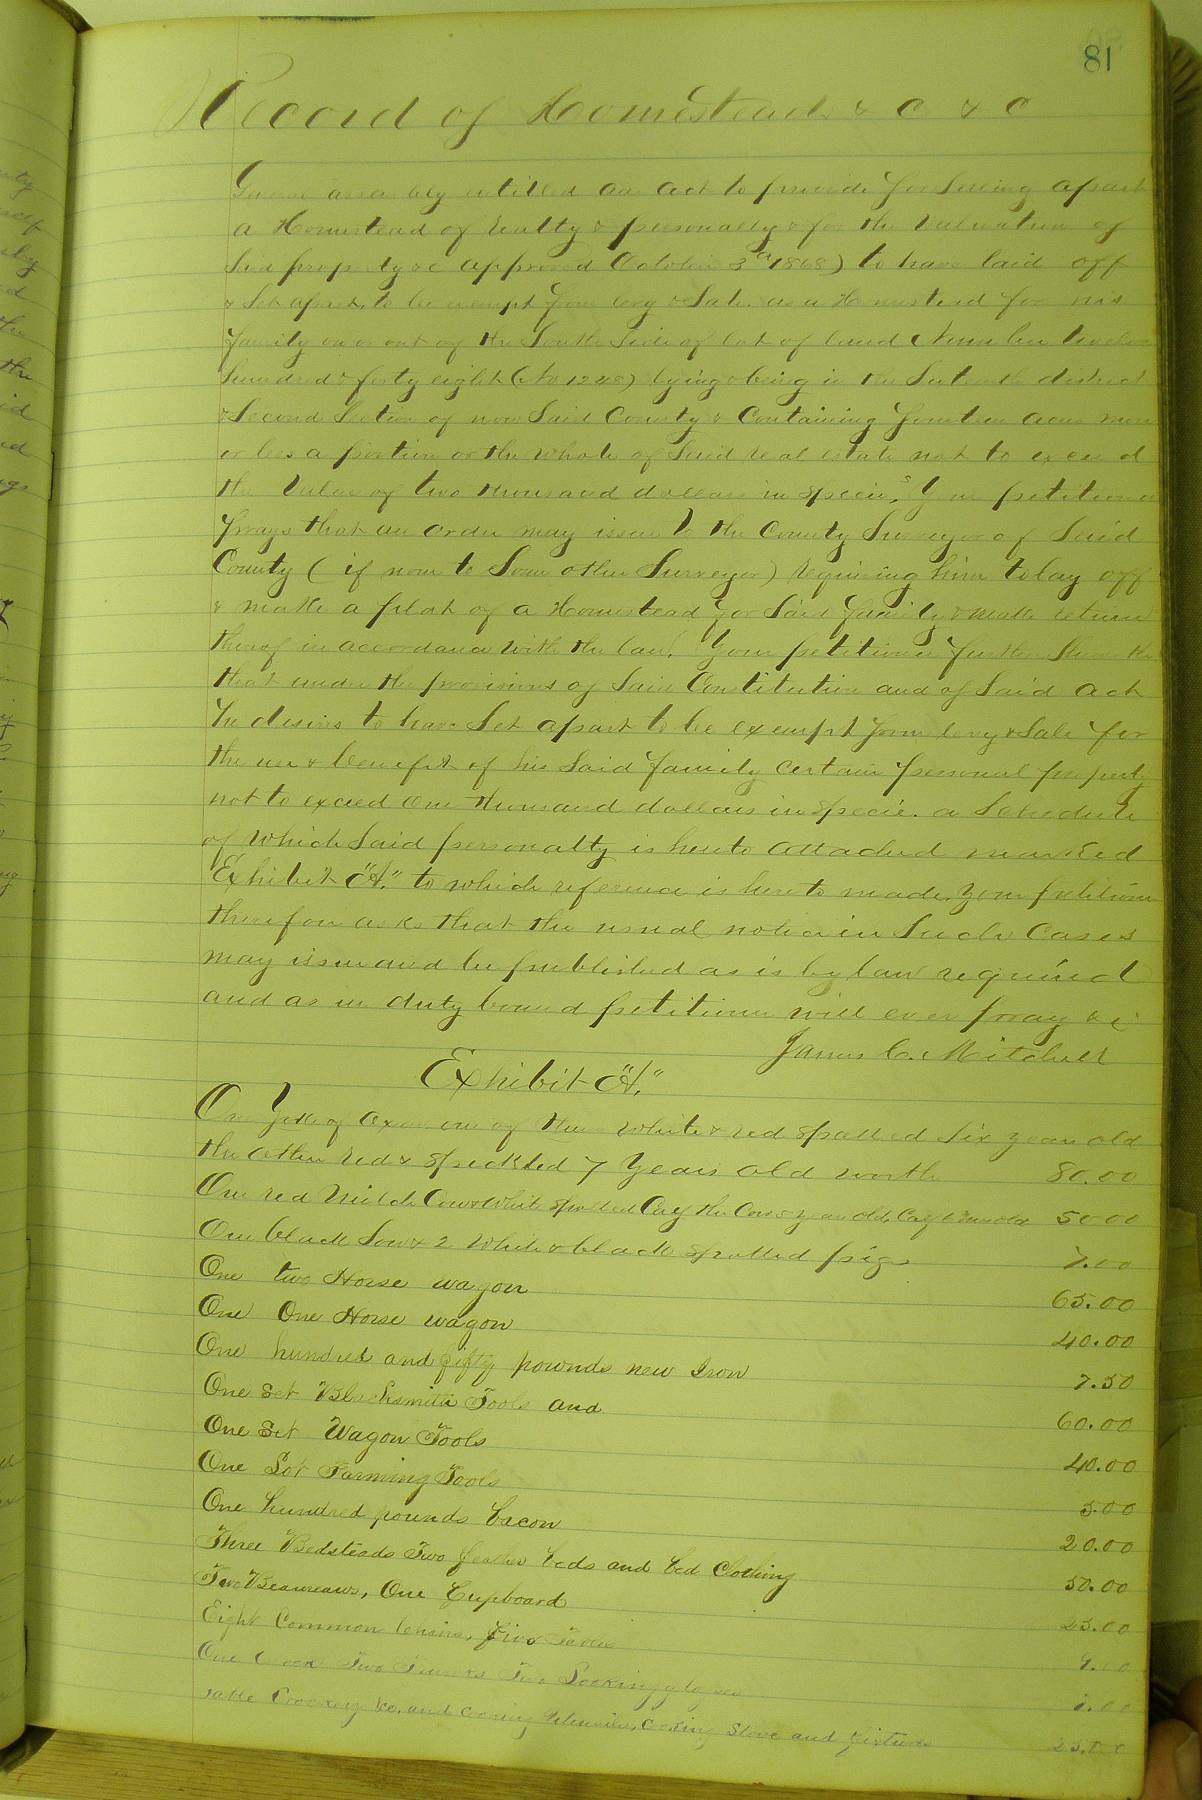 81
Record of Homestead & C & C
General assembly entitled an act to provide for setting apart
a Homestead of realty & personalty & for the valuation of
Said property &c approved October 3rd 1868) to have laid off
& Set apart, to be exempt from levy & Sale. as a Homestead for his
family on or out of the South Side of lot of land Number twelve
hundred & forty eight (No 1248) lying & being in the district
& Second Section of now Said County & Containing fourteen acres more
or less a portion or the whole of Said real estate not to exceed
the value of two thousand dollars in specie. Your petitioner
prays that an order may issue to the County Surveyor of Said
County (if none to Some other Surveyor) requiring him to lay off
& make a plat of a Homestead for Said family & make return
thereof in accordance with the law. Your petitioner further Shows
that under the provisions of Said Constitution and of Said act
he desires to have Set apart to be exempt from levy & Sale for
the use & benefit of his Said family certain personal property
not to exceed one thousand dollars in specie. a Schedule
of which Said personalty is hereto attached marked
Exhibit "A." to which reference is hereto made. your petitioner
therefore asks that the usual notice in Such Cases
may issue and be published as is by law required
and as in duty bound petitioner will ever pray &c
James C. Mitchell
Exhibit "A."
One Yoke of Oxen one of them White & red spotted Six year old
the other red & speckled 7 Years old worth 80.00
One red Milch Cow & White Spotted Calf the Cow 5 year old, Calf 50.00
One black Sow & 2 White & black spotted pigs 7.00
One two Horse wagon 65.00
One One Horse wagon 40.00
One hundred and fifty pounds new Iron 7.50
One set Blacksmith Tools and 60.00
One Set Wagon Tools 40.00
One Lot Farming Tools 5.00
One hundred pounds bacon 20.00
Three Bedsteads Two feather beds and bed Clothing 50.00
Two Beaureaws, One Cupboard 25.00
Eight Common Chairs, Tables
One Clock Two Trunks Two Looking glasses
Table Crockery &c. and cooking utensils, Cooking Stove and fixtures 25.00